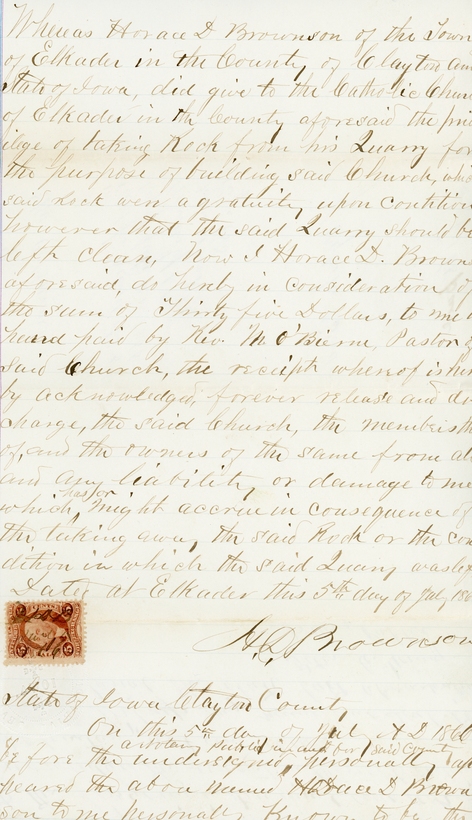 Whereas Horace D Brownson of the Town
of Elkader in the County of Clayton and
State of Iowa, did give to the Catholic Church
of Elkader in the County aforesaid the priv
ilege of taking Rock from his Quarry for
the purpose of building said Church, which
said Rock were a gratuity upon contition
however that the said Quarry should be
left clean, Now I Horace D. Browns
aforesaid, do hereby in consideration of
the sum of Thirty five Dollars, to me in
heand paid by Rev. M O'Bierne, Pastor of
said Church, the receipt whereof is her
by acknowledged, forever release and dis
charge, the said Church, the members th
of, and the owners of the same from all
and any liability or damage to me
which, has or might accrue in consequence of
the taking away the said Rock or the con
dition in which the said Quarry was left
Dated at Elkader this 5th day of July 186
H. D. Brownson
State of Iowa Clayton County
On this 5th day of July A D 186
before the undersigned, a notary public in and for said County personally ap
peared the above named Horace D Brown
son to me personally known to be the